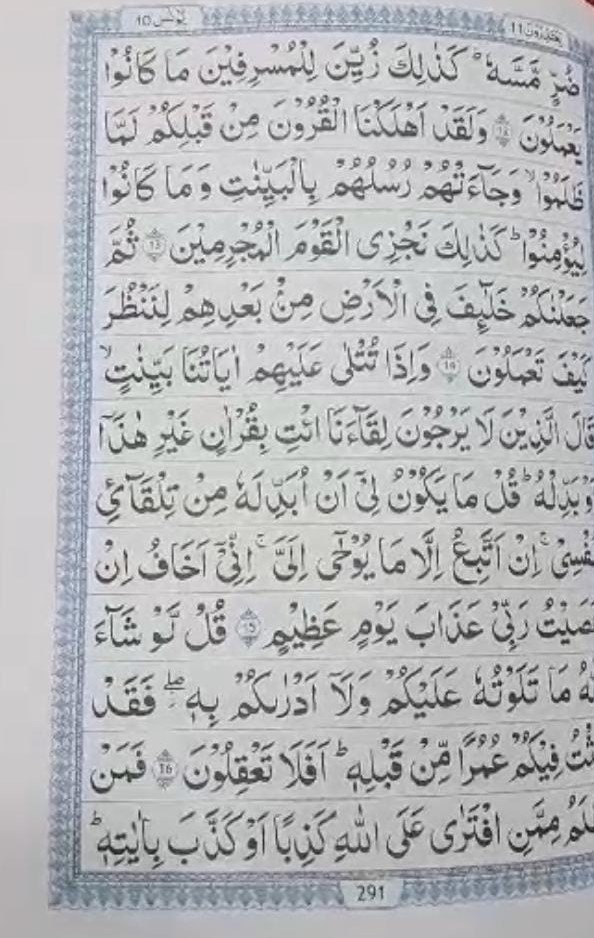 يونس 10 يعتذرون 11
ضُرٍّ مَّسَّهٗ ؕ كَذٰلِكَ زُيِّنَ لِلْمُسْرِفِيْنَ مَا كَانُوْا
يَعْمَلُوْنَ ﴿12﴾ وَلَقَدْ اَهْلَكْنَا الْقُرُوْنَ مِنْ قَبْلِكُمْ لَمَّا
ظَلَمُوْا ۙ وَجَآءَتْهُمْ رُسُلُهُمْ بِالْبَيِّنٰتِ وَمَا كَانُوْا
لِيُؤْمِنُوْا ؕ كَذٰلِكَ نَجْزِى الْقَوْمَ الْمُجْرِمِيْنَ ﴿13﴾ ثُمَّ
جَعَلْنٰكُمْ خَلٰٓئِفَ فِى الْاَرْضِ مِنْۢ بَعْدِهِمْ لِنَنْظُرَ
كَيْفَ تَعْمَلُوْنَ ﴿14﴾ وَاِذَا تُتْلٰى عَلَيْهِمْ اٰيَاتُنَا بَيِّنٰتٍ ۙ
قَالَ الَّذِيْنَ لَا يَرْجُوْنَ لِقَآءَنَا ائْتِ بِقُرْاٰنٍ غَيْرِ هٰذَاۤ
اَوْ بَدِّلْهُ ؕ قُلْ مَا يَكُوْنُ لِىْۤ اَنْ اُبَدِّلَهٗ مِنْ تِلْقَآئِ
نَفْسِىْ ۚ اِنْ اَتَّبِعُ اِلَّا مَا يُوْحٰۤى اِلَىَّ ۚ اِنِّىْۤ اَخَافُ اِنْ
عَصَيْتُ رَبِّىْ عَذَابَ يَوْمٍ عَظِيْمٍ ﴿15﴾ قُلْ لَّوْ شَآءَ
اللّٰهُ مَا تَلَوْتُهٗ عَلَيْكُمْ وَلَاۤ اَدْرٰٮكُمْ بِهٖ ۖ فَقَدْ
لَبِثْتُ فِيْكُمْ عُمُرًا مِّنْ قَبْلِهٖ ؕ اَفَلَا تَعْقِلُوْنَ ﴿16﴾ فَمَنْ
اَظْلَمُ مِمَّنِ افْتَرٰى عَلَى اللّٰهِ كَذِبًا اَوْ كَذَّبَ بِاٰيٰتِهٖ ؕ
291